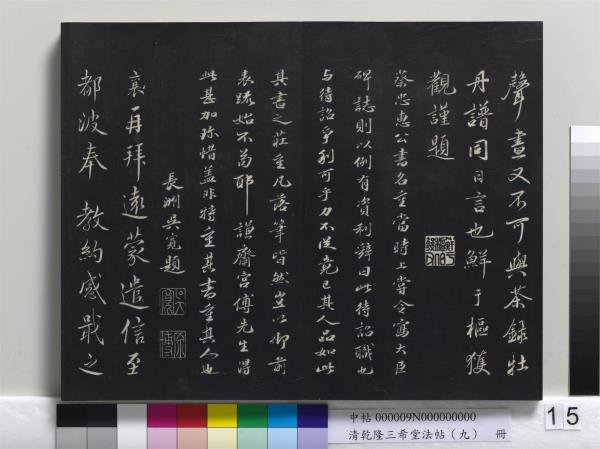 聲畫又不可與茶錄牡
丹譜同日言也鮮于樞獲
觀謹題
蔡忠惠公書名重當時上嘗令寫大臣
碑誌則以例有資利辭曰此待詔職也
与待詔爭利可乎力不從竟已其人品如此
其書之莊重凡落筆皆然豈以御前
表疏始不苟耶謙齋宮傅先生得
此甚加珎惜蓋非特重其書重其人也
長洲吳寬題
襄再拜遠蒙遣信至
都波奉 教約感戢之
中帖 000009N000000000
清乾隆三希堂法帖（九） 冊
15